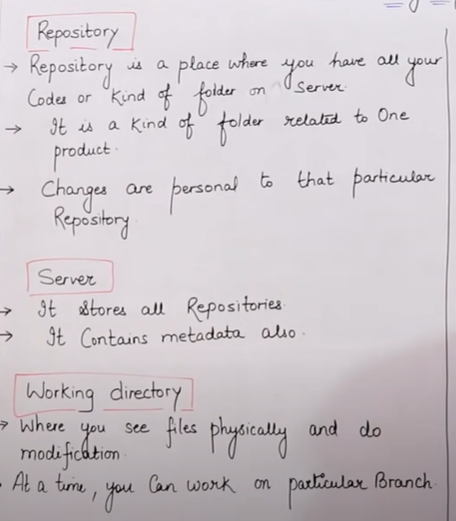 Repository
→ Repository is a place where you have all your
Codes or Kind of folder on Server.
→ It is a Kind of folder related to One
product.
→ Changes are personal to that particular
Repository.
Server
→ It Stores all Repositories.
→ It Contains metadata also.
Working directory
→ Where you see files physically and do
modification.
At a time, you Can work on particular Branch.